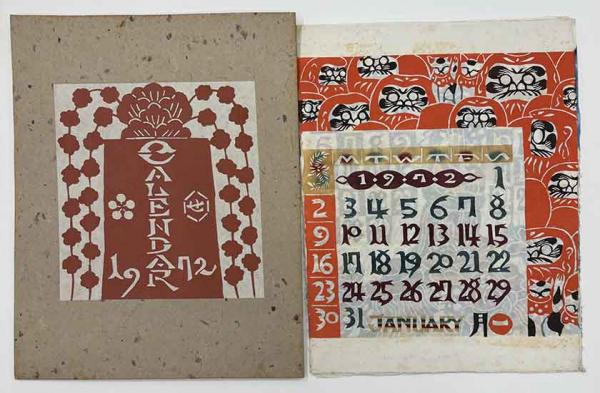 CALENDAR
1972
M T W T F S
1972 1
2 3 4 5 6 7 8
9 10 11 12 13 14 15
16 17 18 19 20 21 22
23 24 25 26 27 28 29
30 31 JANUARY 月 一